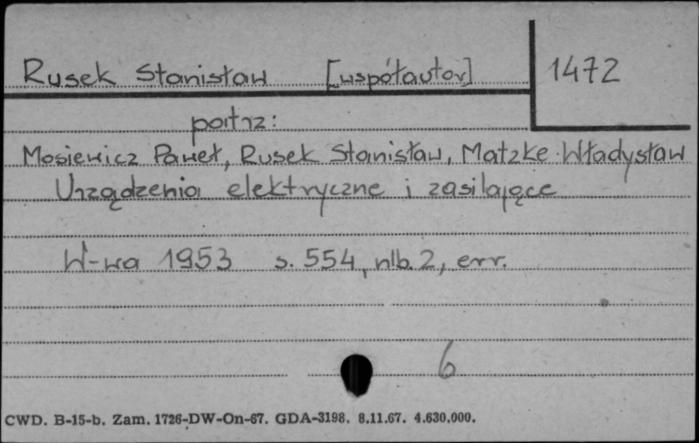 Rusek Stanisław [współautor] 1472
patrz:
Mosiewicz Paweł, Rusek Stanisław, Matzke Władysław
Urządzenia elektryczne i zasilające
W-wa 1953 s. 554, nlb. 2, err.
6
CWD. B-15-b. Zam. 1726-DW-On-67. GDA-3198. 8.11.67. 4.630.000.